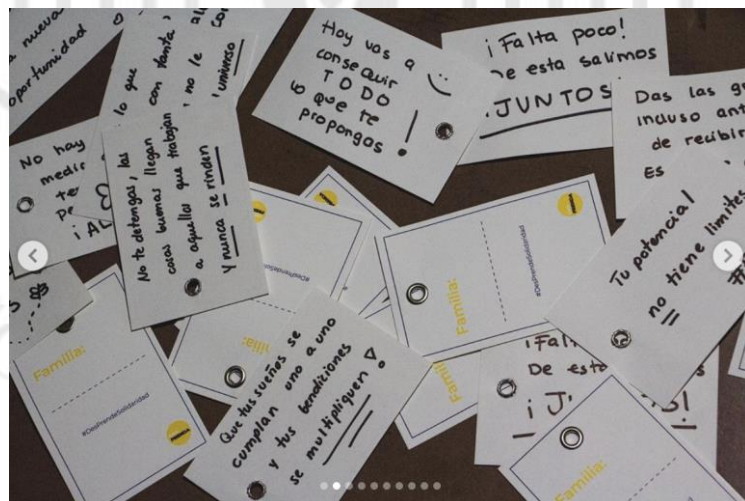 nueva
oportunidad
lo que
con tanta
no le
universo
Hoy vas a
conseguir
TODO
lo que te
propongas!
¡Falta poco!
De esta salimos
¡JUNTOS!
Das las
incluso
de recibir
Es
No hay
No te detengas, las
cosas buenas llegan
a aquellos que trabajan
y nunca se rinden
Tu potencial
no tiene límites
Familia:
#DesPrendeSolidaridad
Familia:
#DesPrendeSolidaridad
Familia:
#DesPrendeSolidaridad
Que tus sueños se
cumplan uno a uno
y tus bendiciones
se multipliquen
De esta
Familia: